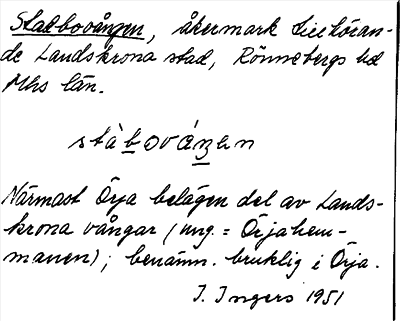 Stadbovången, åkermark tillhöran-
de Landskrona stad, Rönnebergs hd
Mhs län.
stàbováŋen
Närmast Örja belägen del av Lands-
krona vångar (ung. = Örjahem-
manen); benämn. bruklig i Örja.
I. Ingers 1951